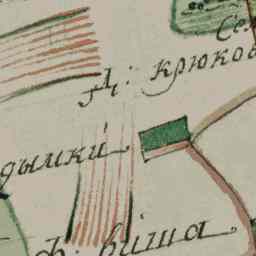 Сел
Д: крюков
дымки
ф: виша